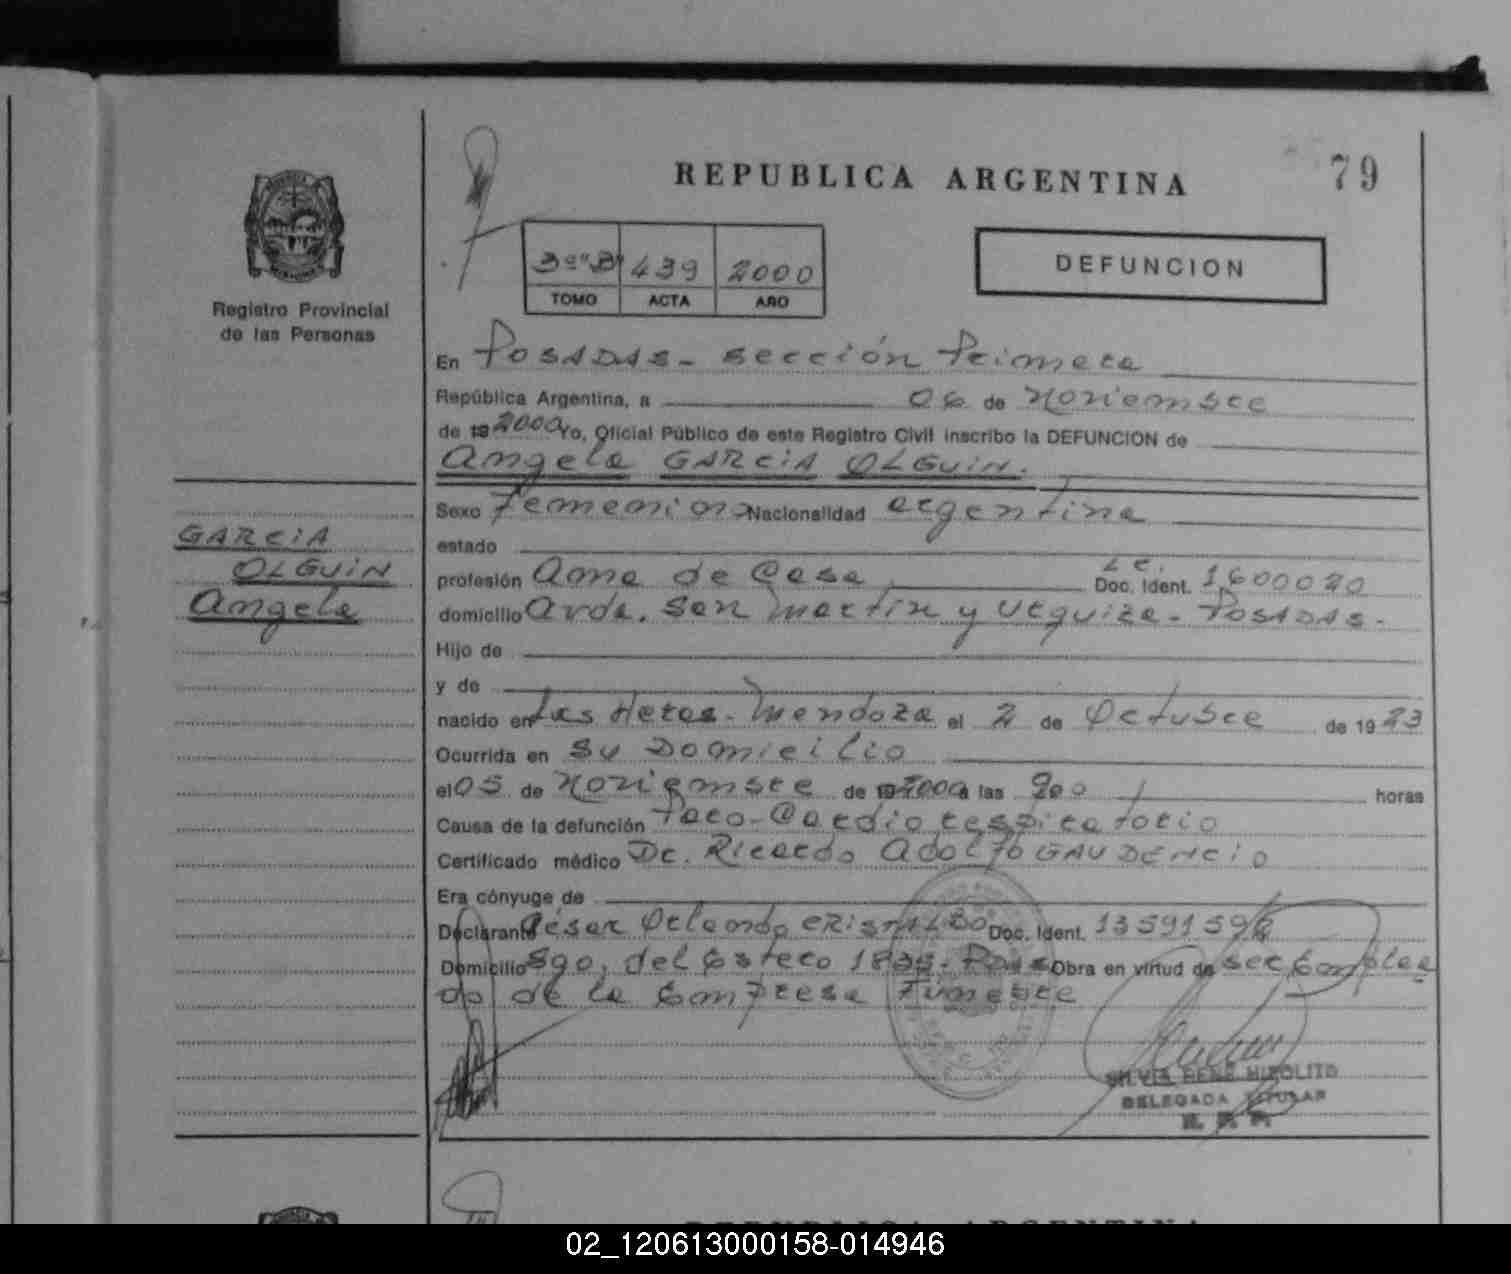 REPUBLICA ARGENTINA
79
Registro Provincial
de las Personas
439 2000
TOMO ACTA AÑO
DEFUNCION
En POSADAS - sección Primera
República Argentina, a 06 de Noviembre
de 19 2000 Yo, Oficial Público de este Registro Civil inscribo la DEFUNCION de
Angela GARCIA OLGUIN.
Sexo Femenino Nacionalidad argentina
GARCIA
OLGUIN
Angela
estado
profesión Ama de Casa L.C. Doc. Ident. 1600020
domicilio Avda. San Martin y Urquiza - POSADAS -
Hijo de
y de
nacido en Las Heras - Mendoza el 2 de Octubre de 1923
Ocurrida en su Domicilio
el 05 de Noviembre de 19 2000 a las horas
Causa de la defunción Paro - Cardio respiratorio
Certificado médico Dr. Ricardo Adolfo GAUDENCIO
Era cónyuge de
Declarante César Orlando Doc. Ident.
Domicilio Sgo. del Estero Obra en virtud de ser Emplea
do de la Empresa Funebre
SILVIA RENE HIPOLITO
DELEGADA TITULAR
REPUBLICA ARGENTINA
02_120613000158-014946